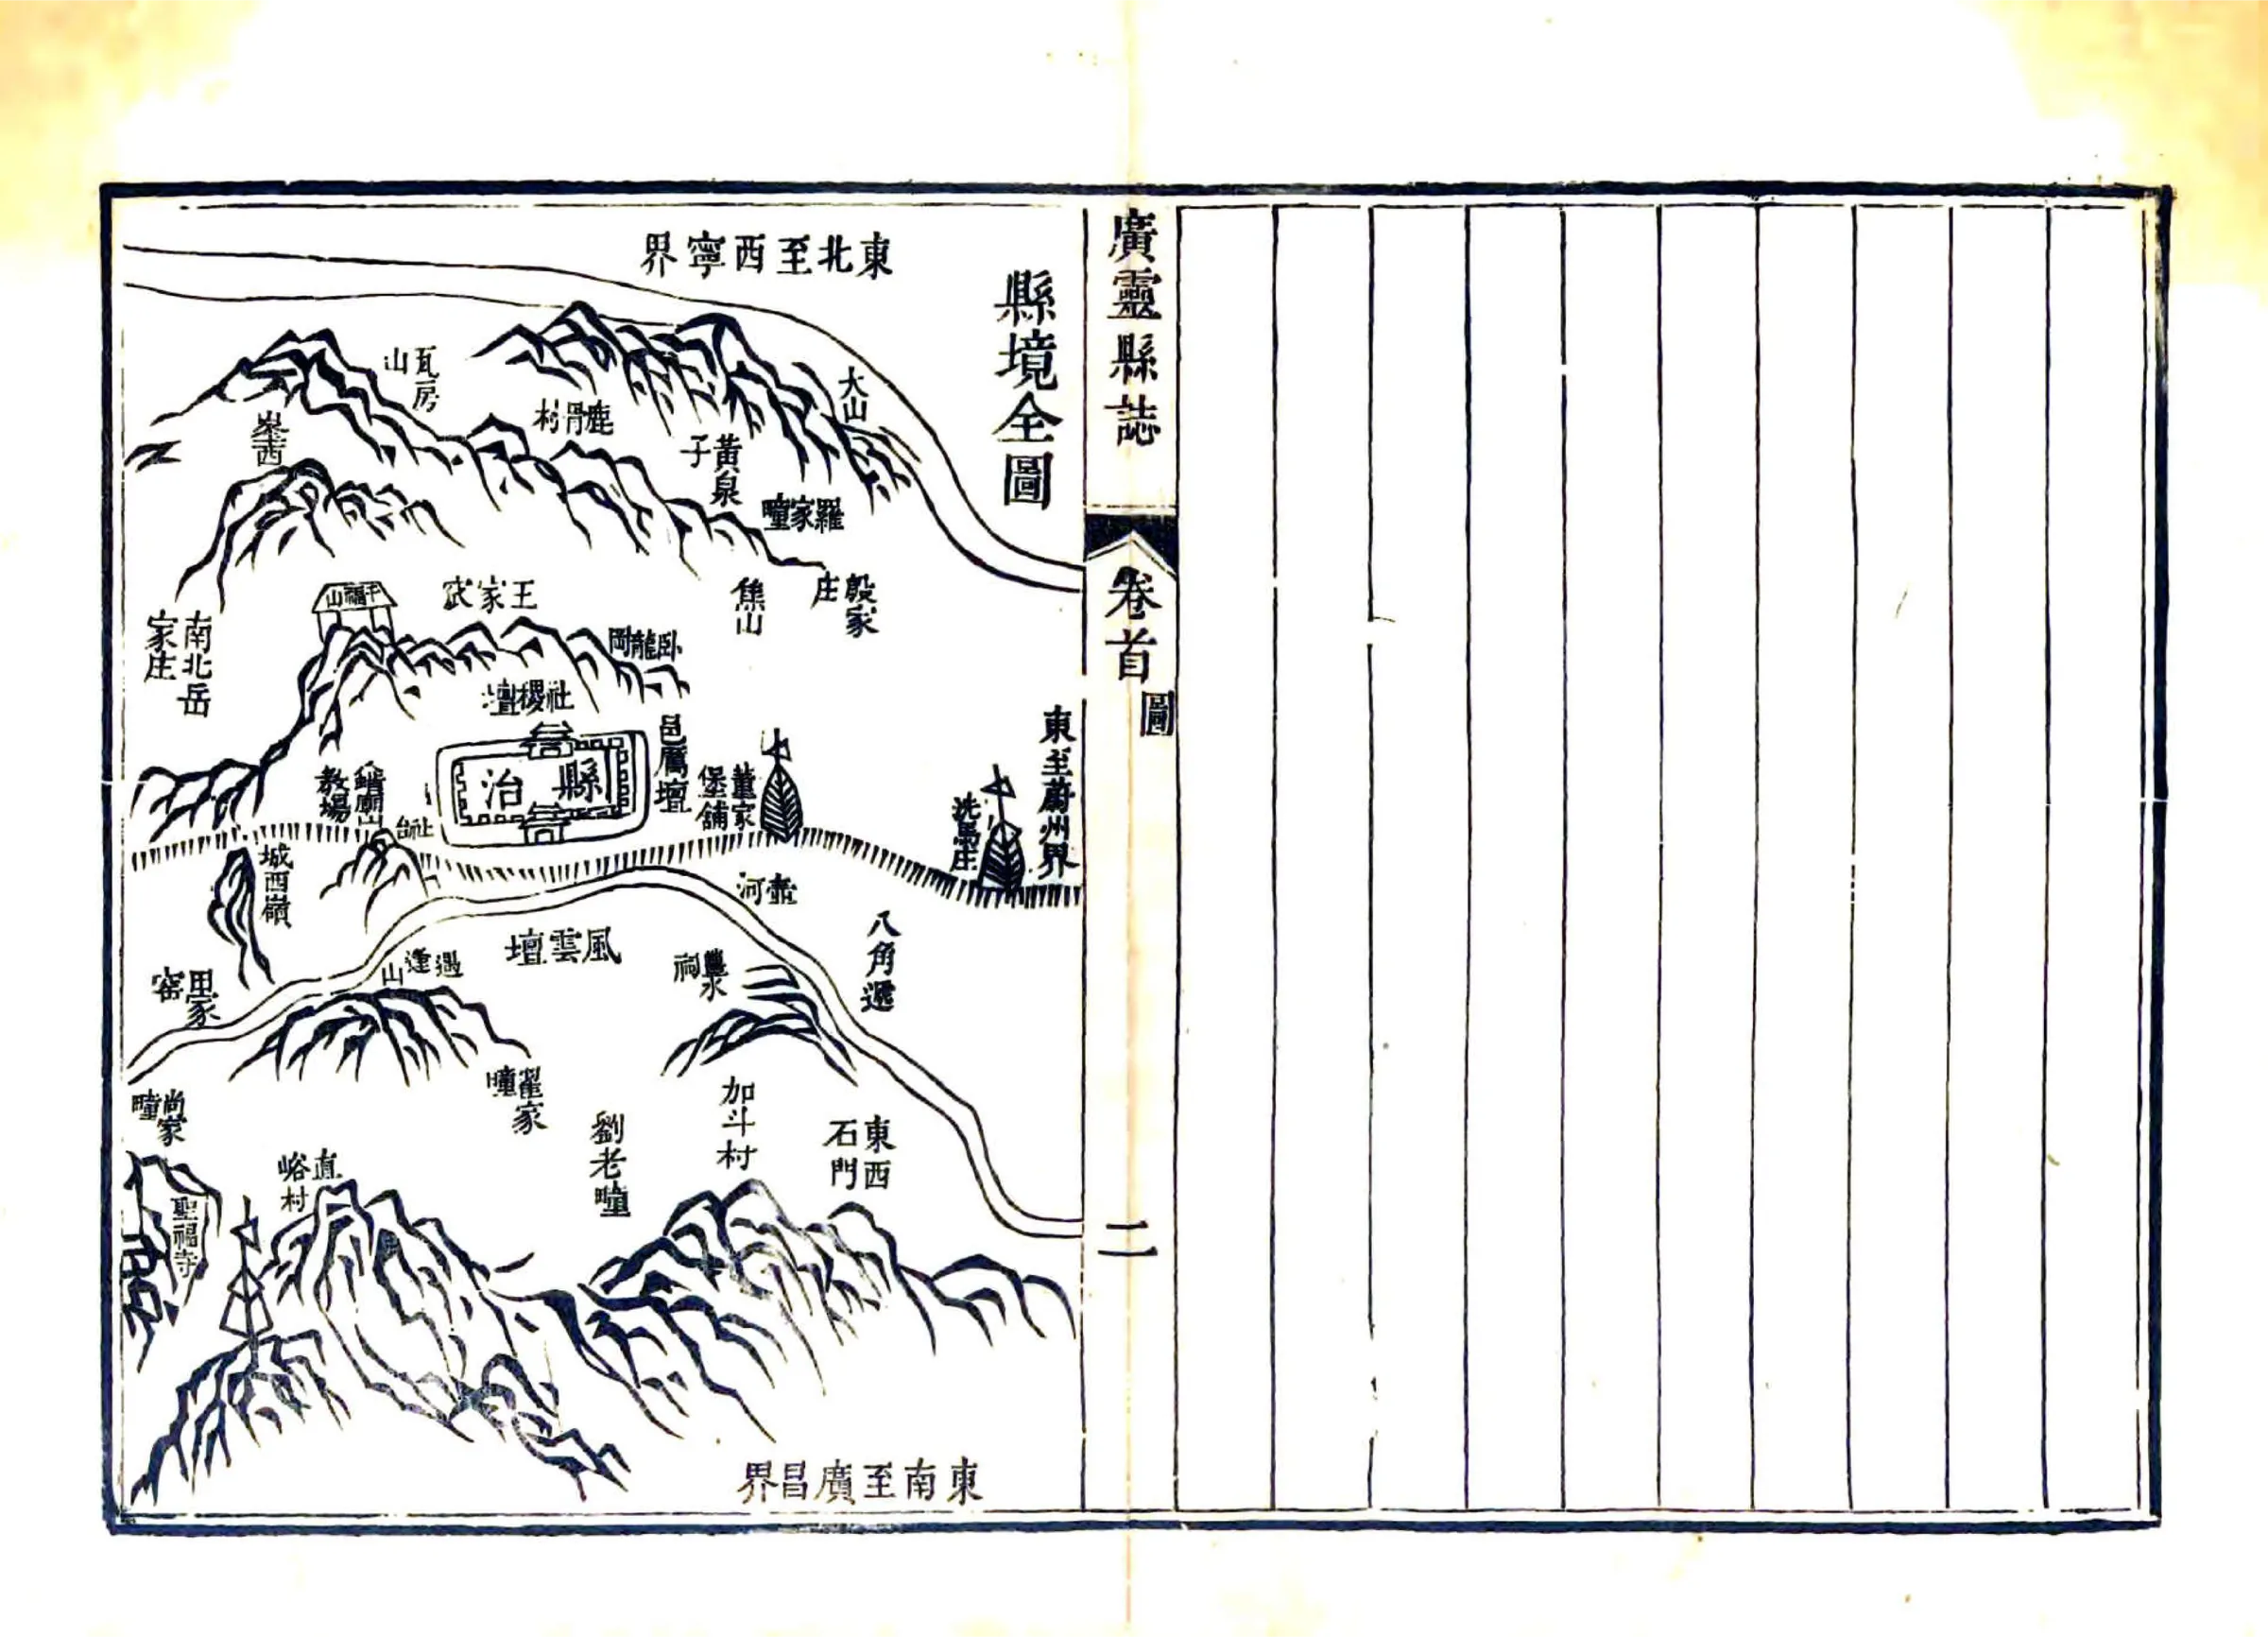 廣靈縣誌
卷首
圖
二
縣境全圖
東北至西寧界
大山
瓦房山
鹿骨村
黃泉子
羅家疃
殷家庄
焦山
王家㽵
千福山
南北岳家庄
臥龍岡
社稷壇
邑厲壇
縣治
董家堡舖
東至蔚州界
洗馬庄
教場
社台
城西嶺
壺河
八角遞
風雲壇
豐水祠
遇逢山
翟家疃
尚家疃
加斗村
東西石門
劉老疃
直峪村
聖福寺
東南至廣昌界